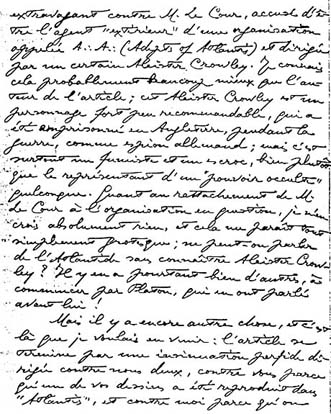 extravagant contre M. Le Cour, accusé d'ê-
tre l'agent "extérieur" d'une organisation
appelée A∴ A∴ (Adepts of Atlantis) et dirigée
par un certain Aleister Crowley. Je connais
cela probablement beaucoup mieux que l'au-
teur de l'article ; cet Aleister Crowley est un
personnage fort peu recommandable, qui a
été emprisonné en Angleterre, pendant la
guerre, comme espion allemand ; mais c'est
surtout un fumiste et un escroc, bien plutôt
que le représentant d'un "pouvoir occulte"
quelconque. Quant au rattachement de M.
Le Cour à l'organisation en question, je n'en
crois absolument rien, et cela me paraît tout
simplement grotesque ; ne peut-on parler
de l'Atlantide sans connaître Aleister Crow-
ley ? Il y en a pourtant bien d'autres, à
commencer par Platon, qui en ont parlé
avant lui !
Mais il y a encore autre chose, et c'est
là que je voulais en venir : l'article se
termine par une insinuation perfide di-
rigée contre nous deux, contre vous parce
qu'un de vos dessins a été reproduit dans
"Atlantis", et contre moi parce qu'on